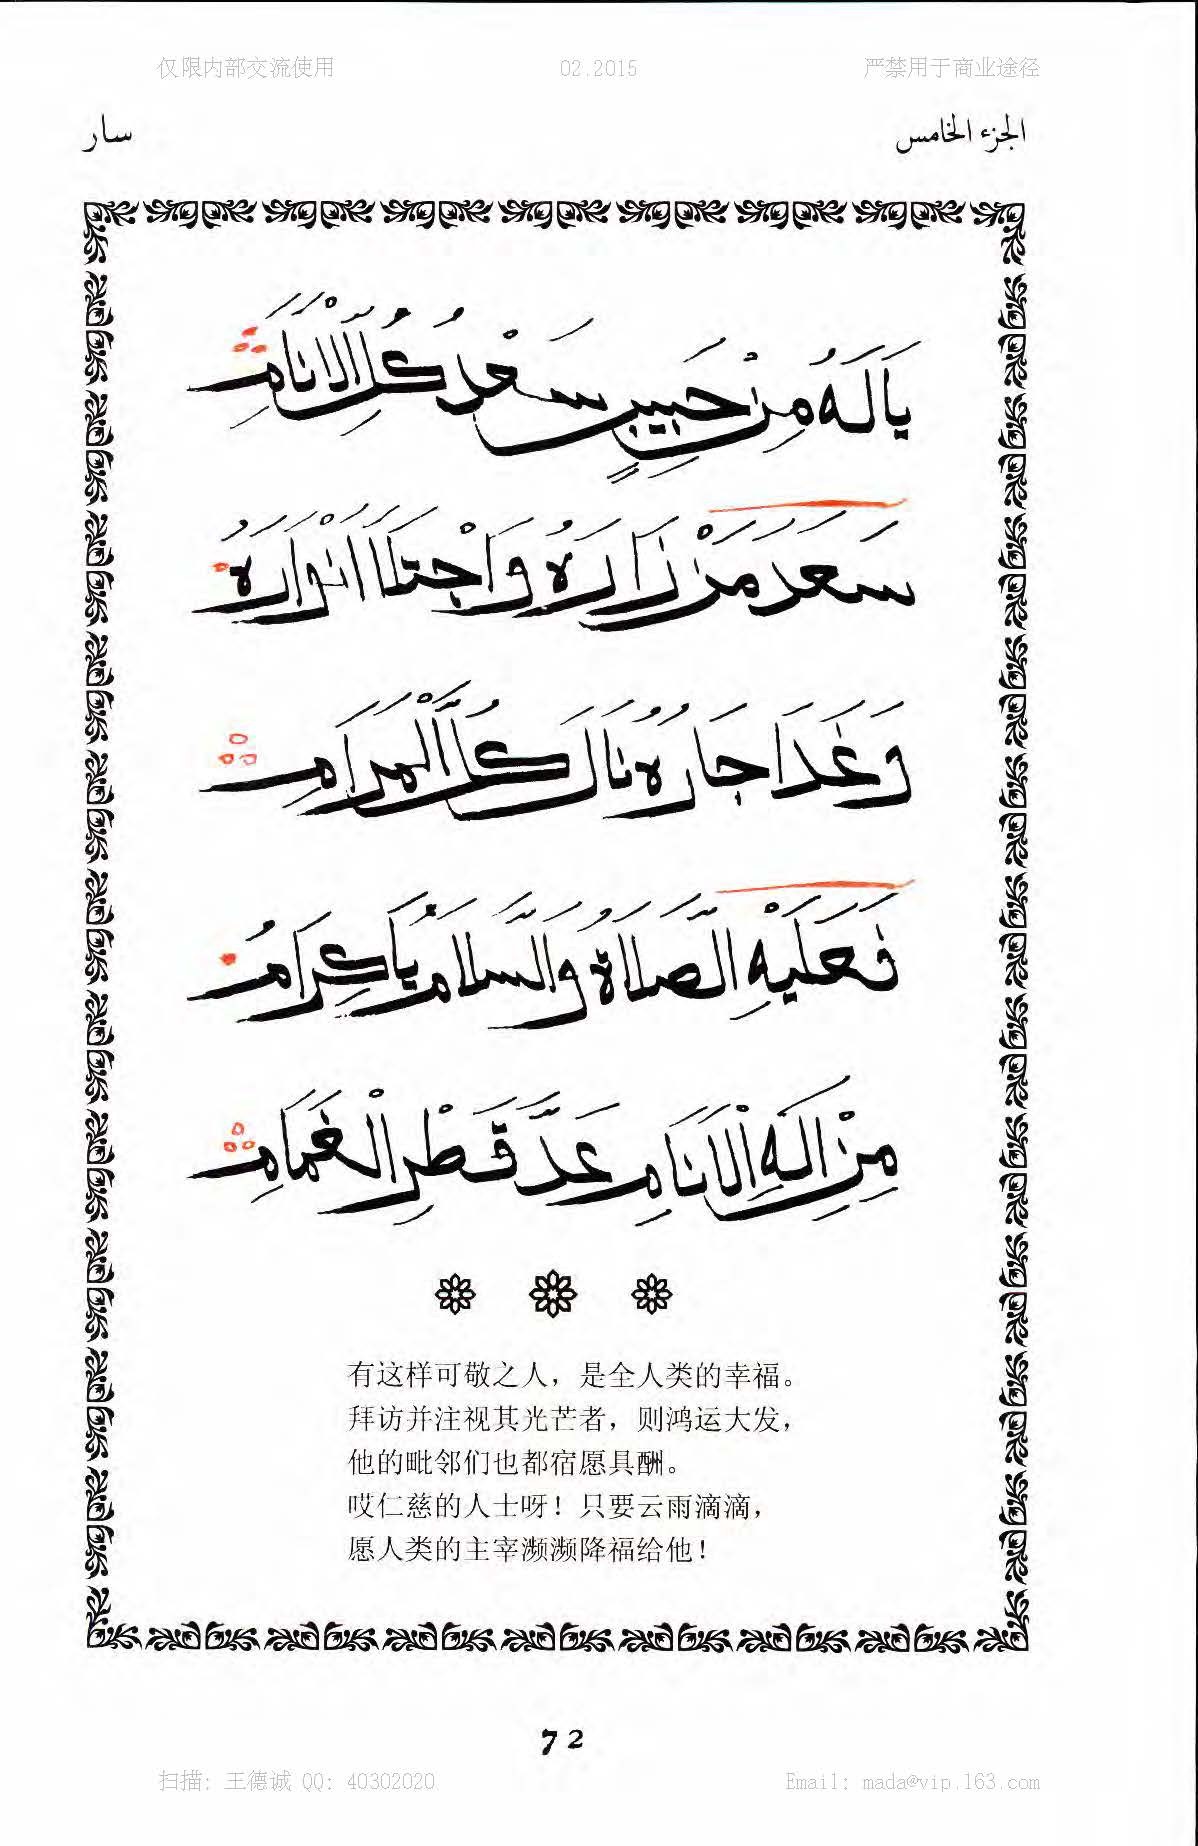 仅限内部交流使用 02.2015 严禁用于商业途径
الجزء الخامس سار
يَالَهُ مِنْ حَبِيبٍ سَعْدُ كُلِّ الْاَنَامِ
سَعَدَ مَنْ زَارَهُ وَاجْتَلَا اَنْوَارَهُ
وَغَدَا جَارُهُ نَالَ كُلَّ الْمَرَامِ
فَعَلَيْهِ الصَّلَاةُ وَالسَّلَامُ يَا كِرَامُ
مِنْ اِلَهِ الْاَنَامِ عَدَّ قَطْرِ الْغَمَامِ
有这样可敬之人，是全人类的幸福。
拜访并注视其光芒者，则鸿运大发，
他的毗邻们也都宿愿具酬。
哎仁慈的人士呀！只要云雨滴滴，
愿人类的主宰濒濒降福给他！
72
扫描: 王德诚 QQ: 40302020 Email: mada@vip.163.com